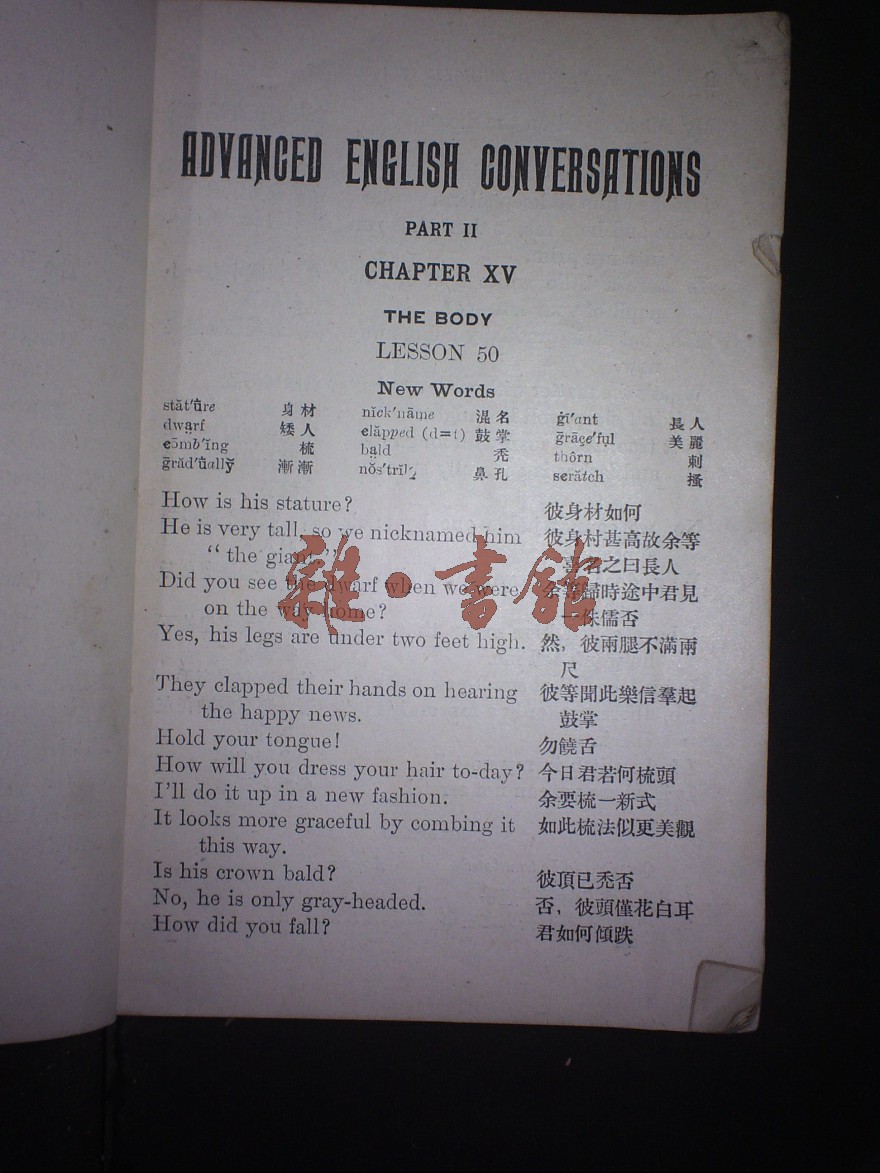 ADVANCED ENGLISH CONVERSATIONS
PART II
CHAPTER XV
THE BODY
LESSON 50
New Words
stăt′ūre 身材 nĭck′nāme 混名 ġī′ant 長人
dwạrf 矮人 clăpped (d=t) 鼓掌 ḡrāçe′fụl 美麗
cōmb′ĭng 梳 bạld 禿 thôrn 刺
ḡrăd′ūally̆ 漸漸 nŏs′trĭl 鼻孔 scrătch 搔
How is his stature? 彼身材如何
He is very tall, so we nicknamed him 彼身村甚高故余等
“the giant.” 名之曰長人
Did you see the dwarf when we were 余等歸時途中君見
on the way home? 一侏儒否
Yes, his legs are under two feet high. 然，彼兩腿不滿兩
尺
They clapped their hands on hearing 彼等聞此樂信羣起
the happy news. 鼓掌
Hold your tongue! 勿饒舌
How will you dress your hair to-day? 今日君若何梳頭
I’ll do it up in a new fashion. 余要梳一新式
It looks more graceful by combing it 如此梳法似更美觀
this way.
Is his crown bald? 彼頂已禿否
No, he is only gray-headed. 否，彼頭僅花白耳
How did you fall? 君如何傾跌
雜·書館